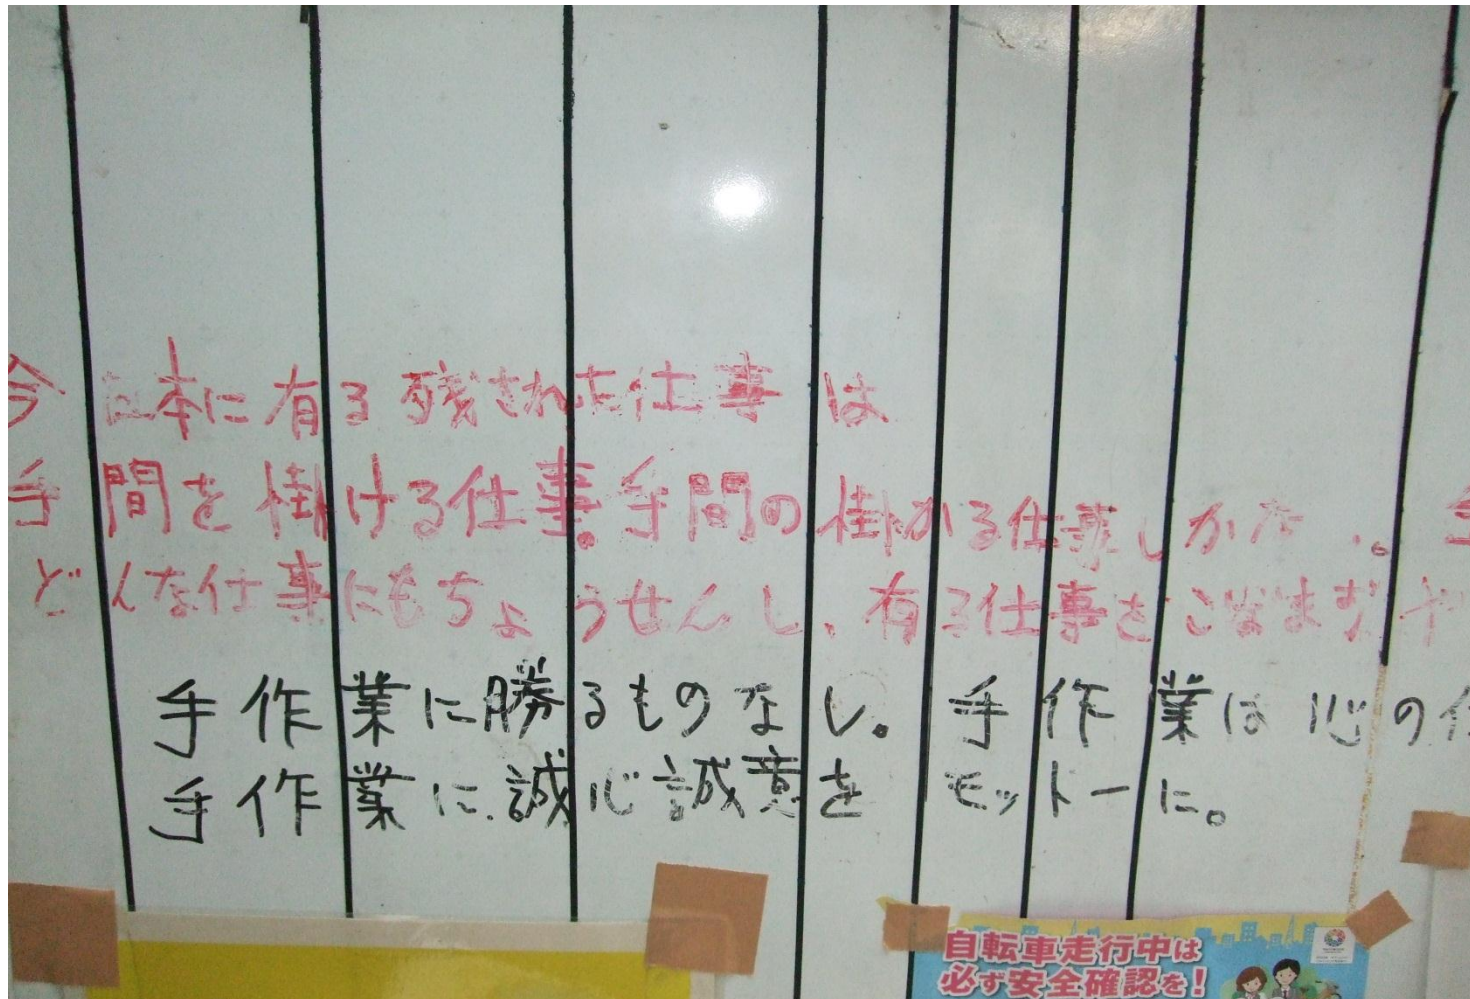 今 日本に有る残された仕事は
手間を掛ける仕事。手間の掛かる仕事しかな
どんな仕事にもちょうせんし、有る仕事をこなまず
手作業に勝るものなし。手作業は心の
手作業に誠心誠意をモットーに。
自転車走行中は
必ず安全確認を!